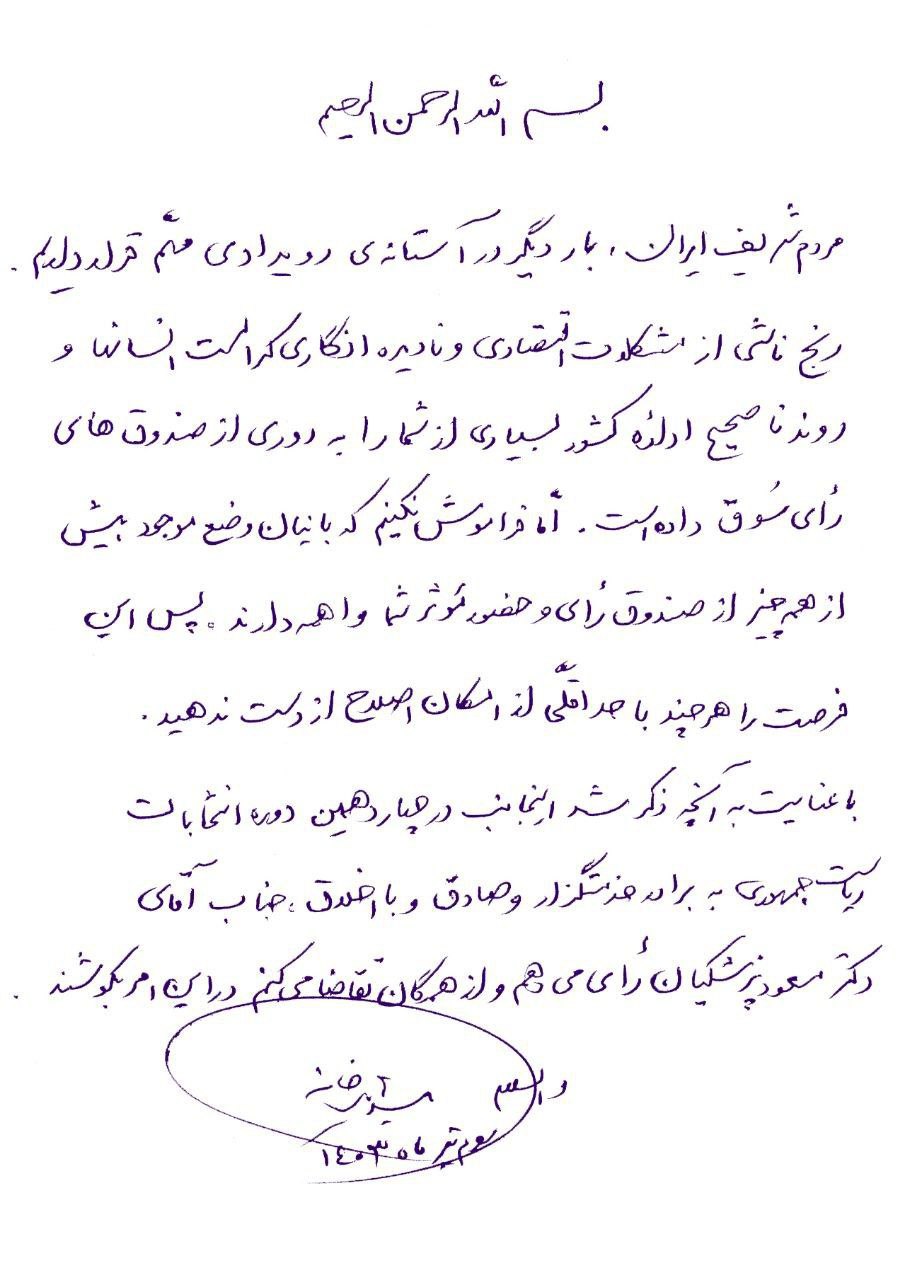 بسم الله الرحمن الرحیم
مردم شریف ایران، بار دیگر در آستانه‌ی رویدادی مهّم قرار داریم.
رنج ناشی از مشکلات اقتصادی و نادیده انگاری کرامت انسانها و
روند ناصحیح اداره کشور بسیاری از شما را به دوری از صندوق های
رأی سُوق داده است. امّا فراموش نکنیم که بانیان وضع موجود بیش
از همه چیز از صندوق رأی و حضور مؤثر شما واهمه دارند. پس این
فرصت را هر چند با حداقلّی از امکان اصلاح از دست ندهید.
با عنایت به آنچه ذکر شد اینجانب در چهاردهمین دوره انتخابات
ریاست جمهوری به برادر خدمتگزار و صادق و با اخلاق، جناب آقای
دکتر مسعود پزشکیان رأی می دهم و از همگان تقاضا می کنم در این امر بکوشند.
والسلام
سوم تیر ماه ۱۴۰۳